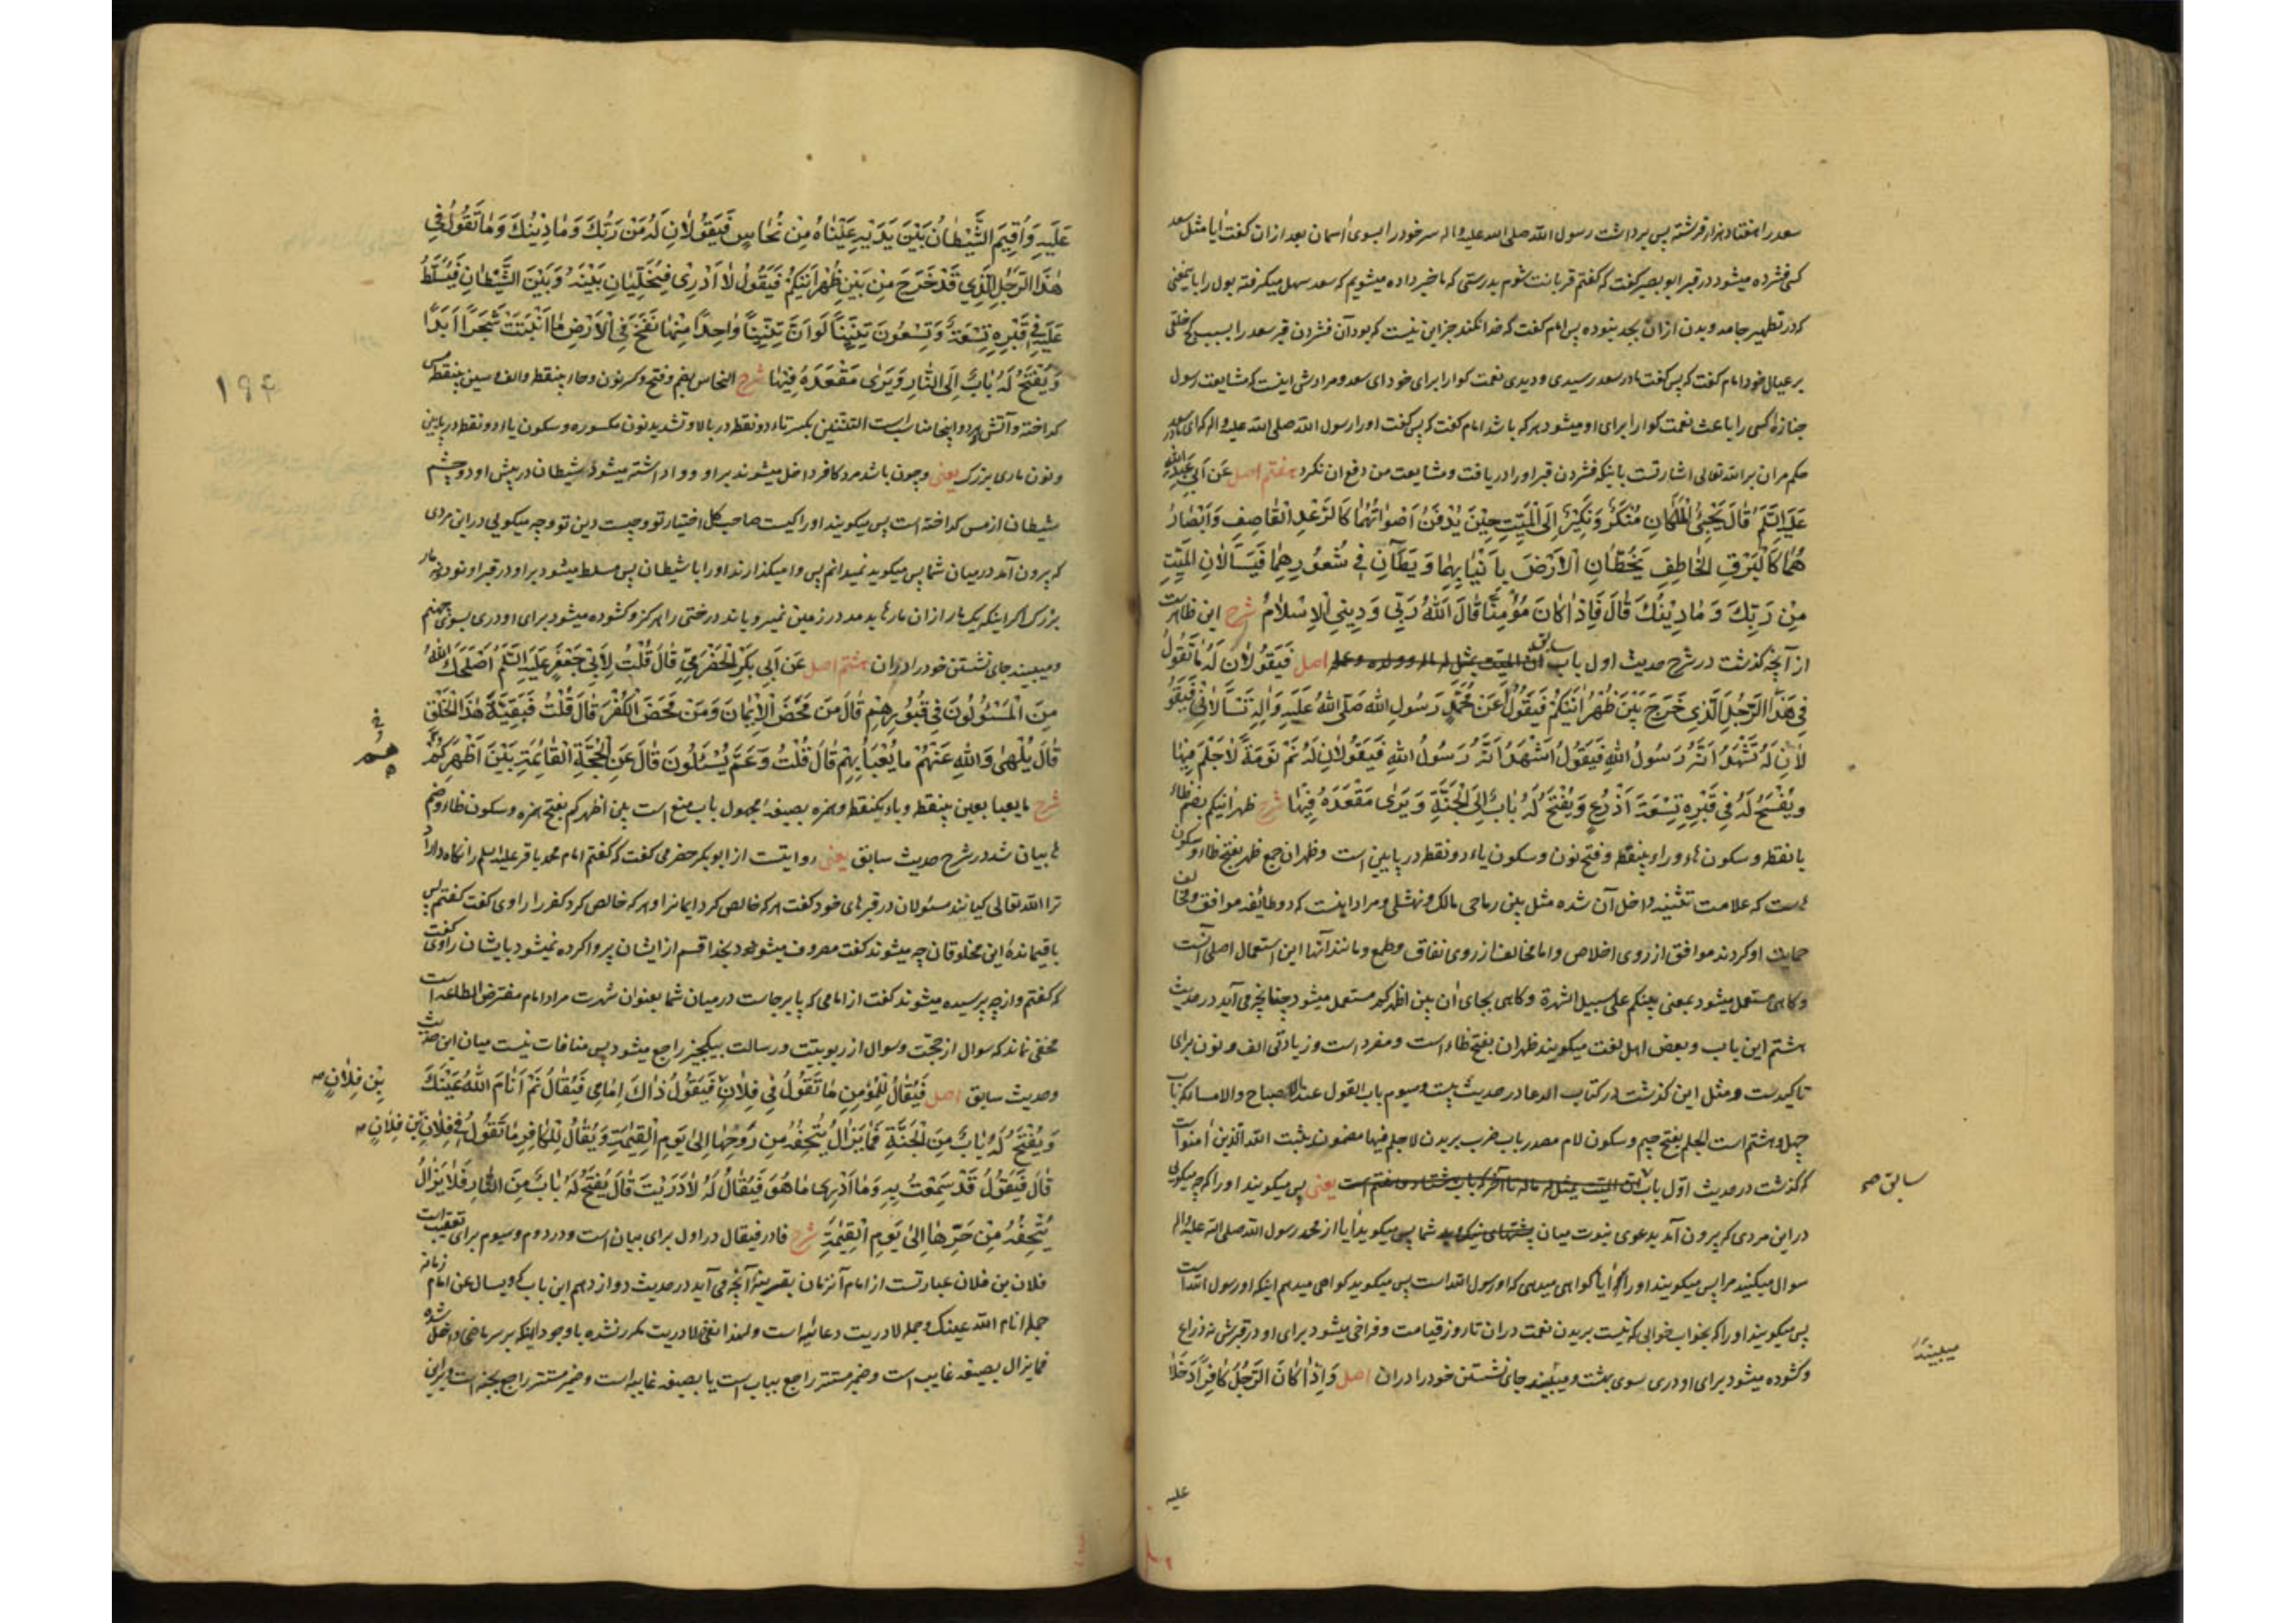 سعد را هفتاد هزار فرشته پس برداشت رسول الله صلی الله علیه و اله سر خود را بسوی اسمان بعد ازان گفت ایا مثل سعد
کسی فشرده میشود در قبر ابو بصیر گفت که گفتم قربانت شوم بدرستی که ما خبر داده میشویم که سعد سهل میگرفته بول را باینمعنی
که در تطهیر جامه و بدن ازان بجد نبوده پس امام گفت که خدا نکند جز این نیست که بود آن فشردن قبر سعد را بسبب کج خلقی
بر عیال خود امام گفت که پس گفت مادر سعد رسیدی و دیدی نعمت گوارا برای خود ای سعد و مرادش اینست که مشایعت رسول
جنازهٔ کسی را باعث نعمت گوارا برای او میشود هر که باشد امام گفت که پس گفت او را رسول الله صلی الله علیه و اله که ای مادر سعد
حکم مران بر الله تعالی اشارتست باینکه فشردن قبر او را دریافت و مشایعت من دفع ان نکرد هفتم اصل عَن اَبی عَبدِ اللّٰه
عَلَیهِ السَّلَمُ قَالَ یَجِیْئُ الْمَلَکَانِ مُنْکَرٌ وَ نَکِیْرٌ اِلَی الْمَیِّتِ حِیْنَ یُدْفَنُ اَصْوَاتُهُمَا کَالرَّعْدِ الْقَاصِفِ وَ اَبْصَارُ
هُمَا کَالْبَرْقِ الْخَاطِفِ یَخُطَّانِ الْاَرْضَ بِاَنْیَابِهِمَا وَ یَطَآنِ فِی شُعُورِهِمَا فَیَسْاَلَانِ الْمَیِّتَ
مَنْ رَبُّکَ وَ مَا دِیْنُکَ قَالَ فَاِذَا کَانَ مُؤْمِنًا قَالَ اللّٰهُ رَبِّی وَ دِیْنِی الْاِسْلَامُ شرح این ظاهرست
از آنچه گذشت در شرح حدیث اول باب سابق اصل فَیَقُولَانِ لَهُ مَا تَقُولُ
فِی هَذَا الرَّجُلِ الَّذِی خَرَجَ بَیْنَ ظَهْرَانَیْکُمْ فَیَقُولُ اَعَنْ مُحَمَّدٍ رَسُولِ اللّٰهِ صَلَّی اللّٰهُ عَلَیْهِ وَ اٰلِهِ تَسْاَلَانِی فَیَقُو
لَانِ لَهُ تَشْهَدُ اَنَّهُ رَسُولُ اللّٰهِ فَیَقُولُ اَشْهَدُ اَنَّهُ رَسُولُ اللّٰهِ فَیَقُولَانِ لَهُ نَمْ نَوْمَةً لَا حُلْمَ فِیْهَا
وَ یُفْسَحُ لَهُ فِی قَبْرِهِ تِسْعَةَ اَذْرُعٍ وَ یُفْتَحُ لَهُ بَابٌ اِلَی الْجَنَّةِ وَ یَرٰی مَقْعَدَهُ فِیْهَا شرح ظهرانیکم بفتح ظاء
با نقطه و سکون هاء و راء بینقطه و فتح نون و سکون یاء دو نقطه در پایین است و ظهران جمع ظهر بفتح ظاء و سکون
هاست که علامت تثنیه داخل آن شده مثل بین رماحی مالک و نهشل و مراد اینست که دو طائفه موافق و مخالف
حمایت او کردند موافق از روی اخلاص و اما مخالف از روی نفاق و طمع و مانند آنها این استعمال اصلی آنست
و گاهی مستعمل میشود بمعنی بینکم علی سبیل الشهرة و گاهی بجای ان بین اظهرکم مستعمل میشود چنانچه می آید در حدیث
هشتم این باب و بعض اهل لغت میگویند ظهران بفتح ظاء است و مفرد است و زیادتی الف و نون برای
تاکیدست و مثل این گذشت در کتاب الدعا در حدیث بیست و سیوم باب القول عند الاصباح والامساء که باب
چهل و هشتم است الحلم بفتح جیم و سکون لام مصدر باب ضرب بریدن لا حلم فیها مضمون یثبت الله الذین امنوا است
که گذشت در حدیث اوّل باب سابق یعنی پس میگویند او را که چه میگویی
در این مردی که بیرون آمد بدعوی نبوت میان شما پس میگوید ایا از محمد رسول الله صلی الله علیه و اله
سوال میکنید مرا پس میگویند او را که ایا گواهی میدهی که او رسول الله است پس میگوید گواهی میدهم اینکه او رسول الله است
پس میگویند او را که بخواب خوابی که نیست بریدن نعمت دران تا روز قیامت و فراخی میشود برای او در قبرش نه ذراع
و گشوده میشود برای او دری سوی بهشت و میبیند جای نشستن خود را دران اصل وَ اِذَا کَانَ الرَّجُلُ کَافِرًا دَخَلَا
سابق صح
میبیند
علیه
عَلَیْهِ وَ اُقِیْمَ الشَّیْطَانُ بَیْنَ یَدَیْهِ عَیْنَاهُ مِنْ نُحَاسٍ فَیَقُولَانِ لَهُ مَنْ رَبُّکَ وَ مَا دِیْنُکَ وَ مَا تَقُولُ فِی
هٰذَا الرَّجُلِ الَّذِی قَدْ خَرَجَ مِنْ بَیْنِ ظَهْرَانَیْکُمْ فَیَقُولُ لَا اَدْرِی فَیُخَلِّیَانِ بَیْنَهُ وَ بَیْنَ الشَّیْطَانِ فَیُسَلَّطُ
عَلَیْهِ فِی قَبْرِهِ تِسْعَةٌ وَ تِسْعُونَ تِنِّیْنًا لَوْ اَنَّ تِنِّیْنًا وَاحِدًا مِنْهَا نَفَخَ فِی الْاَرْضِ مَا اَنْبَتَتْ شَجَرًا اَبَدًا
وَ یُفْتَحُ لَهُ بَابٌ اِلَی النَّارِ وَ یَرٰی مَقْعَدَهُ فِیْهَا شرح النحاس بضم و فتح و کسر نون و حاء بینقطه و الف و سین بینقطه مس
گداخته و آتش هر دو اینجا مناسبست التنّین بکسر تاء دو نقطه در بالا و تشدید نون مکسوره و سکون یاء دو نقطه در پایین
و نون ماری بزرک یعنی و چون باشد مرد کافر داخل میشوند بر او و واداشته میشود شیطان در پیش او دو چشم
شیطان از مس گداخته است پس میگویند او را کیست صاحب کل اختیار تو و چیست دین تو و چه میگویی در این مردی
که بیرون آمد در میان شما پس میگوید نمیدانم پس وامیگذارند او را با شیطان پس مسلط میشود بر او در قبر او نود و نه مار
بزرک اگر اینکه یک مار ازان مارها بدمد در زمین نمیرویاند درختی را هرگز و گشوده میشود برای او دری بسوی جهنم
و میبیند جای نشستن خود را دران هشتم اصل عَن اَبی بَکرٍ الْحَضْرَمِیِّ قَالَ قُلْتُ لِاَبِی جَعْفَرٍ عَلَیهِ السَّلَمُ اَصْلَحَکَ اللّٰهُ
مَنِ الْمَسْئُولُونَ فِی قُبُورِهِمْ قَالَ مَنْ مَحَضَ الْاِیْمَانَ وَ مَنْ مَحَضَ الْکُفْرَ قَالَ قُلْتُ فَبَقِیَّةُ هٰذَا الْخَلْقِ
قَالَ یُلْهٰی وَاللّٰهِ عَنْهُمْ مَا یُعْبَاُ بِهِمْ قَالَ قُلْتُ وَ عَمَّ یُسْئَلُونَ قَالَ عَنِ الْحُجَّةِ الْقَائِمَةِ بَیْنَ اَظْهُرِکُمْ
شرح ما یعبا بعین بینقطه و باء یکنقطه و همزه بصیغهٔ مجهول باب منع است بین اظهرکم بفتح همزه و سکون ظاء و ضم
ها بیان شد در شرح حدیث سابق یعنی روایتست از ابو بکر حضرمی گفت که گفتم امام محمد باقر علیه السلم را نگاه دارد
ترا الله تعالی کیانند مسئولان در قبرهای خود گفت هر که خالص کرد ایمانرا و هر که خالص کرد کفر را راوی گفت گفتم پس
باقیماندهٔ این مخلوقان چه میشوند گفت مصروف میشود بخدا قسم از ایشان پروا کرده نمیشود بایشان راوی گفت
که گفتم و از چه پرسیده میشوند گفت از امامی که پا برجاست در میان شما بعنوان شهرت مراد امام مفترض الطاعه است
مخفی نماند که سوال از حجّت و سوال از ربوبیّت و رسالت بیکچیز راجع میشود پس منافات نیست میان این حدیث
و حدیث سابق اصل فَیُقَالُ لِلْمُؤْمِنِ مَا تَقُولُ فِی فُلَانٍ فَیَقُولُ ذَاکَ اِمَامِی فَیُقَالُ نَمْ اَنَامَ اللّٰهُ عَیْنَکَ
وَ یُفْتَحُ لَهُ بَابٌ مِنَ الْجَنَّةِ فَمَا یَزَالُ یُتْحِفُهُ مِنْ رَوْحِهَا اِلٰی یَوْمِ الْقِیٰمَةِ وَ یُقَالُ لِلْکَافِرِ مَا تَقُولُ فِی فُلَانِ بْنِ فُلَانٍ
قَالَ فَیَقُولُ قَدْ سَمِعْتُ بِهِ وَ مَا اَدْرِی مَا هُوَ فَیُقَالُ لَهُ لَا دَرَیْتَ قَالَ یُفْتَحُ لَهُ بَابٌ مِنَ النَّارِ فَلَا یَزَالُ
یُتْحِفُهُ مِنْ حَرِّهَا اِلٰی یَوْمِ الْقِیٰمَةِ شرح فا در فیقال در اول برای بیان است و در دوم و سیوم برای تعقیب است
فلان بن فلان عبارتست از امام آنزمان بقرینهٔ آنچه می آید در حدیث دوازدهم این باب که و یسال عن امام زمانه
جملهٔ انام الله عینک و جملهٔ لا دریت دعائیه است و لهذا نفی لا دریت مکرر نشده با وجود اینکه بر سر ماضی داخل شده
فما یزال بصیغهٔ غایب است و ضمیر مستتر راجع بباب است یا بصیغهٔ غایبه است و ضمیر مستتر راجع بجنه است و برین
بْنِ فُلَانٍ صح